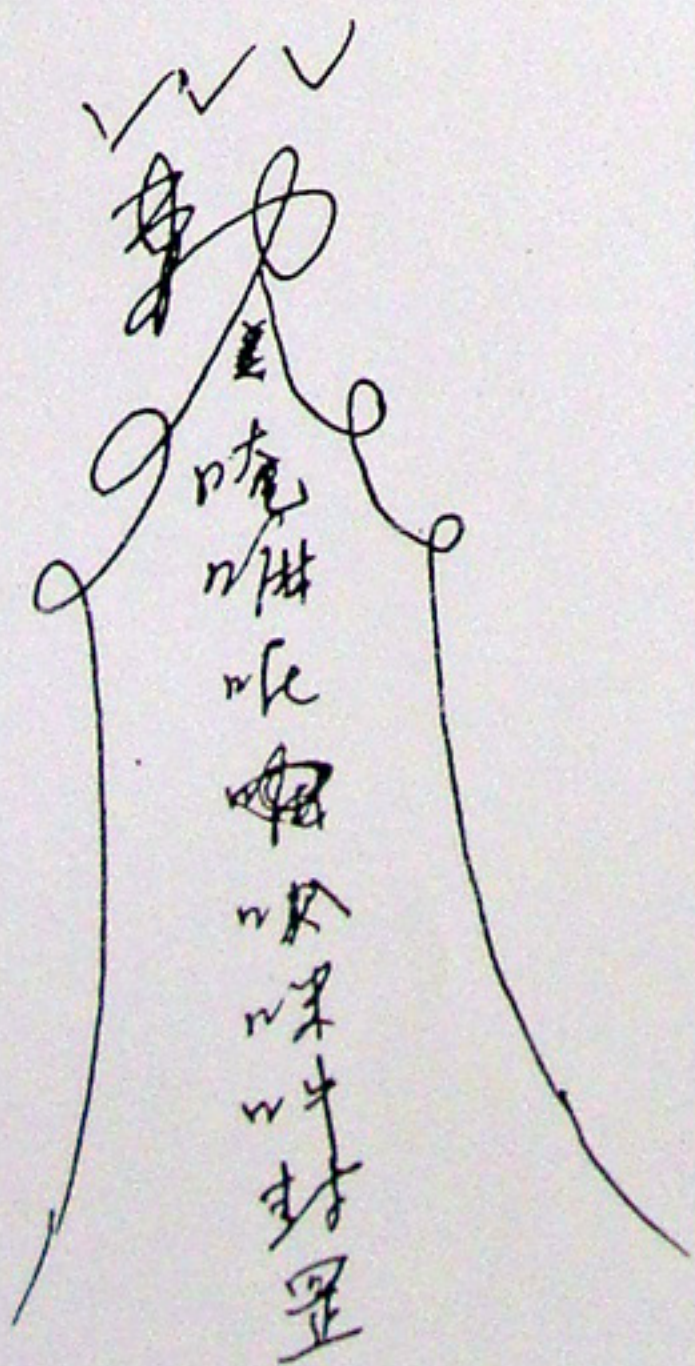 勅
唵
嘛
呢
咪
吽
封
罡